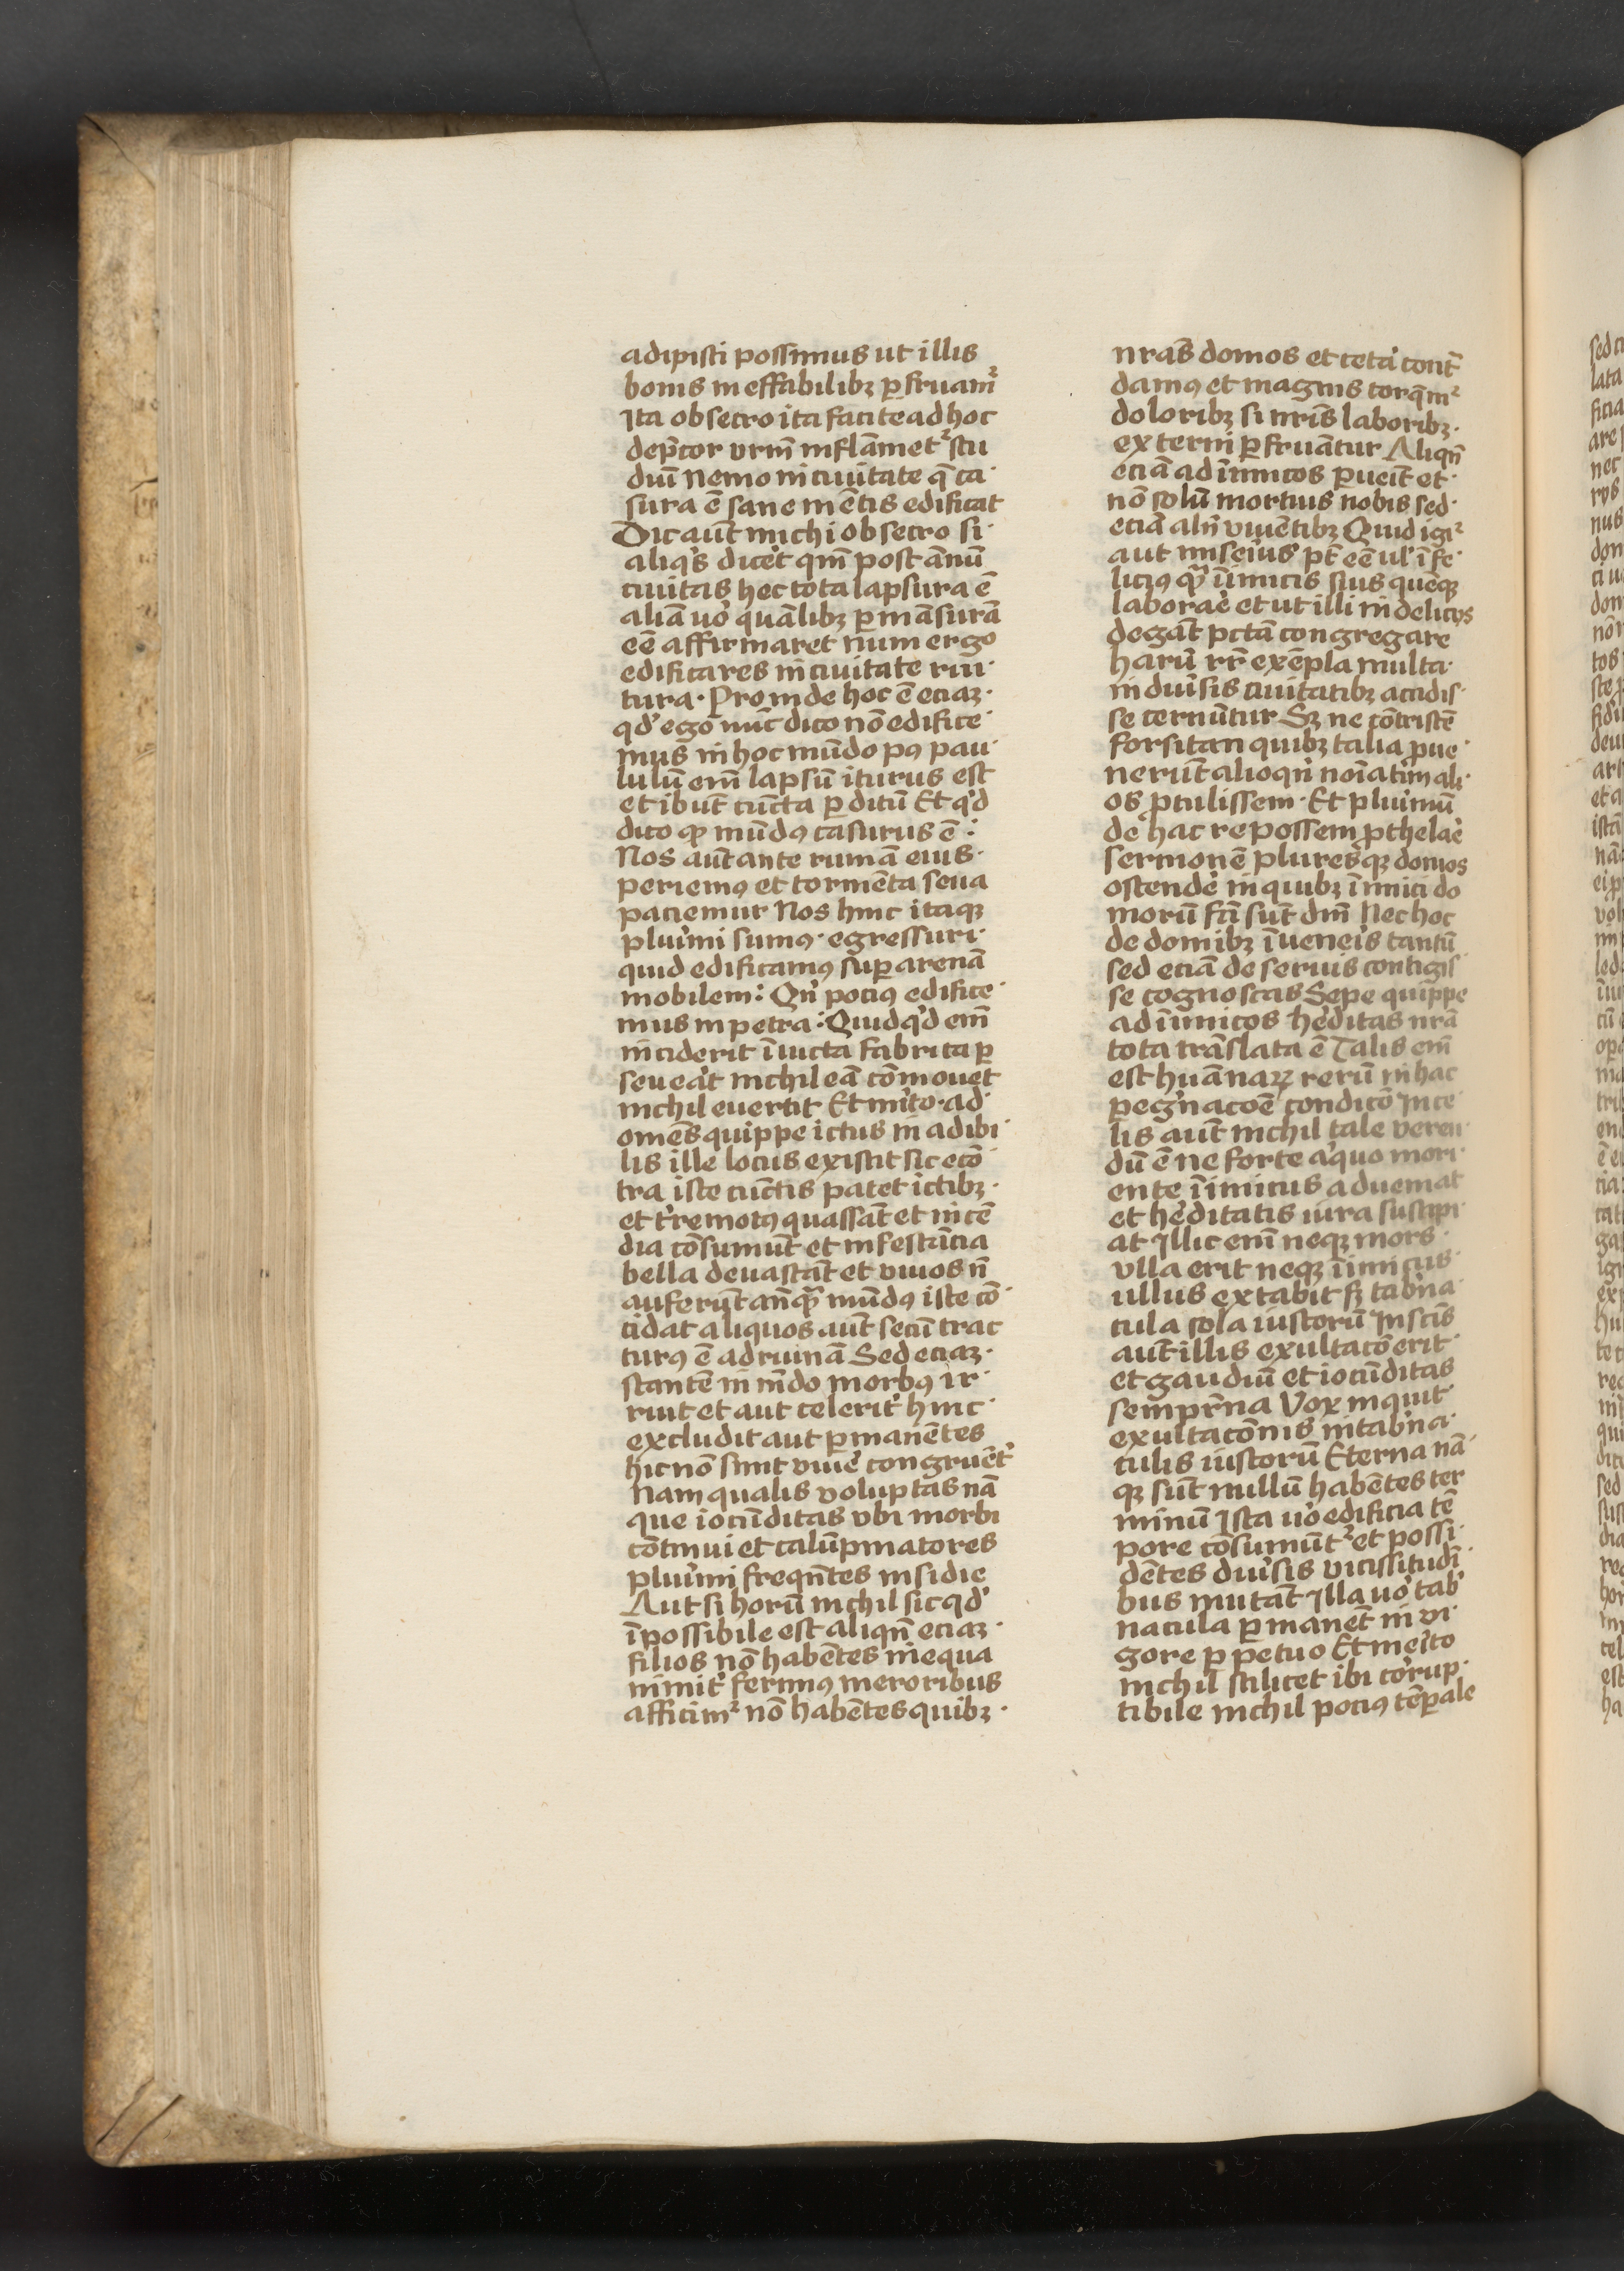 adipisci possimus ut illis
bonis ineffabilibꝫ ꝑfruamᷣ
Ita obsecro ita facite ad hoc
dep̄cor vrm̄ inflām̄etᷣ stu
diū nemo in ciuitate q̄ ca·
sura ē sane mētis edificat
Dic aūt michi obsecro si·
aliq̇s dic̄et qm̄ post ānū
ciuitas hec tota lapsura ē
aliā uo̓ quālibꝫ ꝑmāsurā
eē affirmaret num ergo
edificares in ciuitate rui·
tura· Proinde hoc ē eciaꝫ·
qd̓ ego nūc dico nō edifice·
mus in hoc mūdo pꝰ pau·
lulū em̄ lapsū iturus est
et ibūt cūcta ꝑditū Et qd̓
dico ꝙ mūdꝰ casurus ē:
Nos aūt ante ruinā eius·
periemꝰ et tormēta seua
paciemur Nos hinc itaqꝫ
pluīmi sumꝰ· egressuri·
quid edificamꝰ suꝑ arenā
mobilem: Qn̄ pociꝰ edifice·
mus in petra: Quidqd̓ em̄
inciderit īuicta fabrica ꝑ
seueāt nichil eā cōmouet
nichil euertit Et m̓ito· ad·
omēs quippe ictus inadibi·
lis ille locus existit sic ecō·
tra iste cūctis patet ictibꝫ·
et t̓remotꝰ quassāt et incē
dia cōsumūt et infestācia
bella deuastāt et viuos n̄
auferūt an̄q̄ꝫ mūdꝰ iste cō·
cidat aliquos aūt secū trac
turꝰ ē ad ruinā Sed eciaꝫ·
stantē in mūdo morbꝰ ir·
ruit et aut celerit̓ hinc·
excludit aut ꝑmanētes
hic nō sinit viue̓ congruēt̓
Nam qualis voluptas nā
que iocūditas vbi morbi
cōtinui et calūpniatores
pluīmi freqn̄tes insidie
Aut si horū nichil sic qd̓
īpossibile est aliqn̄ eciaꝫ·
filios nō habētes inequa
nimit̓ ferimꝰ meroribus
afficimᷣ nō habētes quibꝫ·
nrās domos et ceta̓ cont̄
damꝰ et magnis torq̄mᷣ
doloribꝫ si nrīs laboribꝫ·
externi ꝑfruātur Aliqn̄
eciā ad īimicos ꝑueīt et·
nō solū mortuis nobis sed·
eciā aln̄ viuētibꝫ Quid igiᷣ
aut miseiꝰ pt̄ eē ul̓ īfe·
liciꝰ q̄ꝫ īimicis suis queqꝫ
laborae̓ et ut illi in delicijs
degāt pctā congregare
harū rr̄ exēpla multa·
in diuīsis ciuitatibꝫ accidis·
se cernūtur Sꝫ ne cōtristē
forsitan quibꝫ talia ꝓue·
nerūt alioqn̄ noīatim ali·
os ꝓtulissem· Et pluīmū
de hac re possem ꝓthelae̓
sermonē pluresqꝫ domos
ostende̓ in quibꝫ īimici do
morū fc̄i sūt dn̄i Nec hoc
de domibꝫ īueneīs tantū
sed eciā de seruis contigis·
se cognoscas Sepe quippe
ad īimicos he̓ditas nrā
tota trāslata ē Talis em̄
est huānaꝝ rerū in hac
peg̓nacōe condicō In ce·
lis aūt nichil tale veren·
dū ē ne forte aq̇uo mori·
ente īimicus adueniat
et he̓ditatis iura suscipi·
at Illic em̄ neqꝫ mors·
vlla erit neqꝫ īimicus·
ullus extabit sꝫ tab̓na·
cula sola iustorū In scīs
aūt illis exultacō erit·
et gaudiū et iocūditas
semp̄rna Vox inquit·
exultacōnis in tab̓na·
culis iustorū Eterna nā·
qꝫ sūt nullū habētes ter
minū Ista uo̓ edificia tē
pore cōsumūtᷣ et possi·
dētes diuīsis vicissitudī·
bus mutāt Illa uo̓ tab̓
nacula ꝑmanēt in vi·
gore ꝑpetuo Et me̓ito
nichil scilicet ibi corrup·
tibile nichil pociꝰ tēꝑale